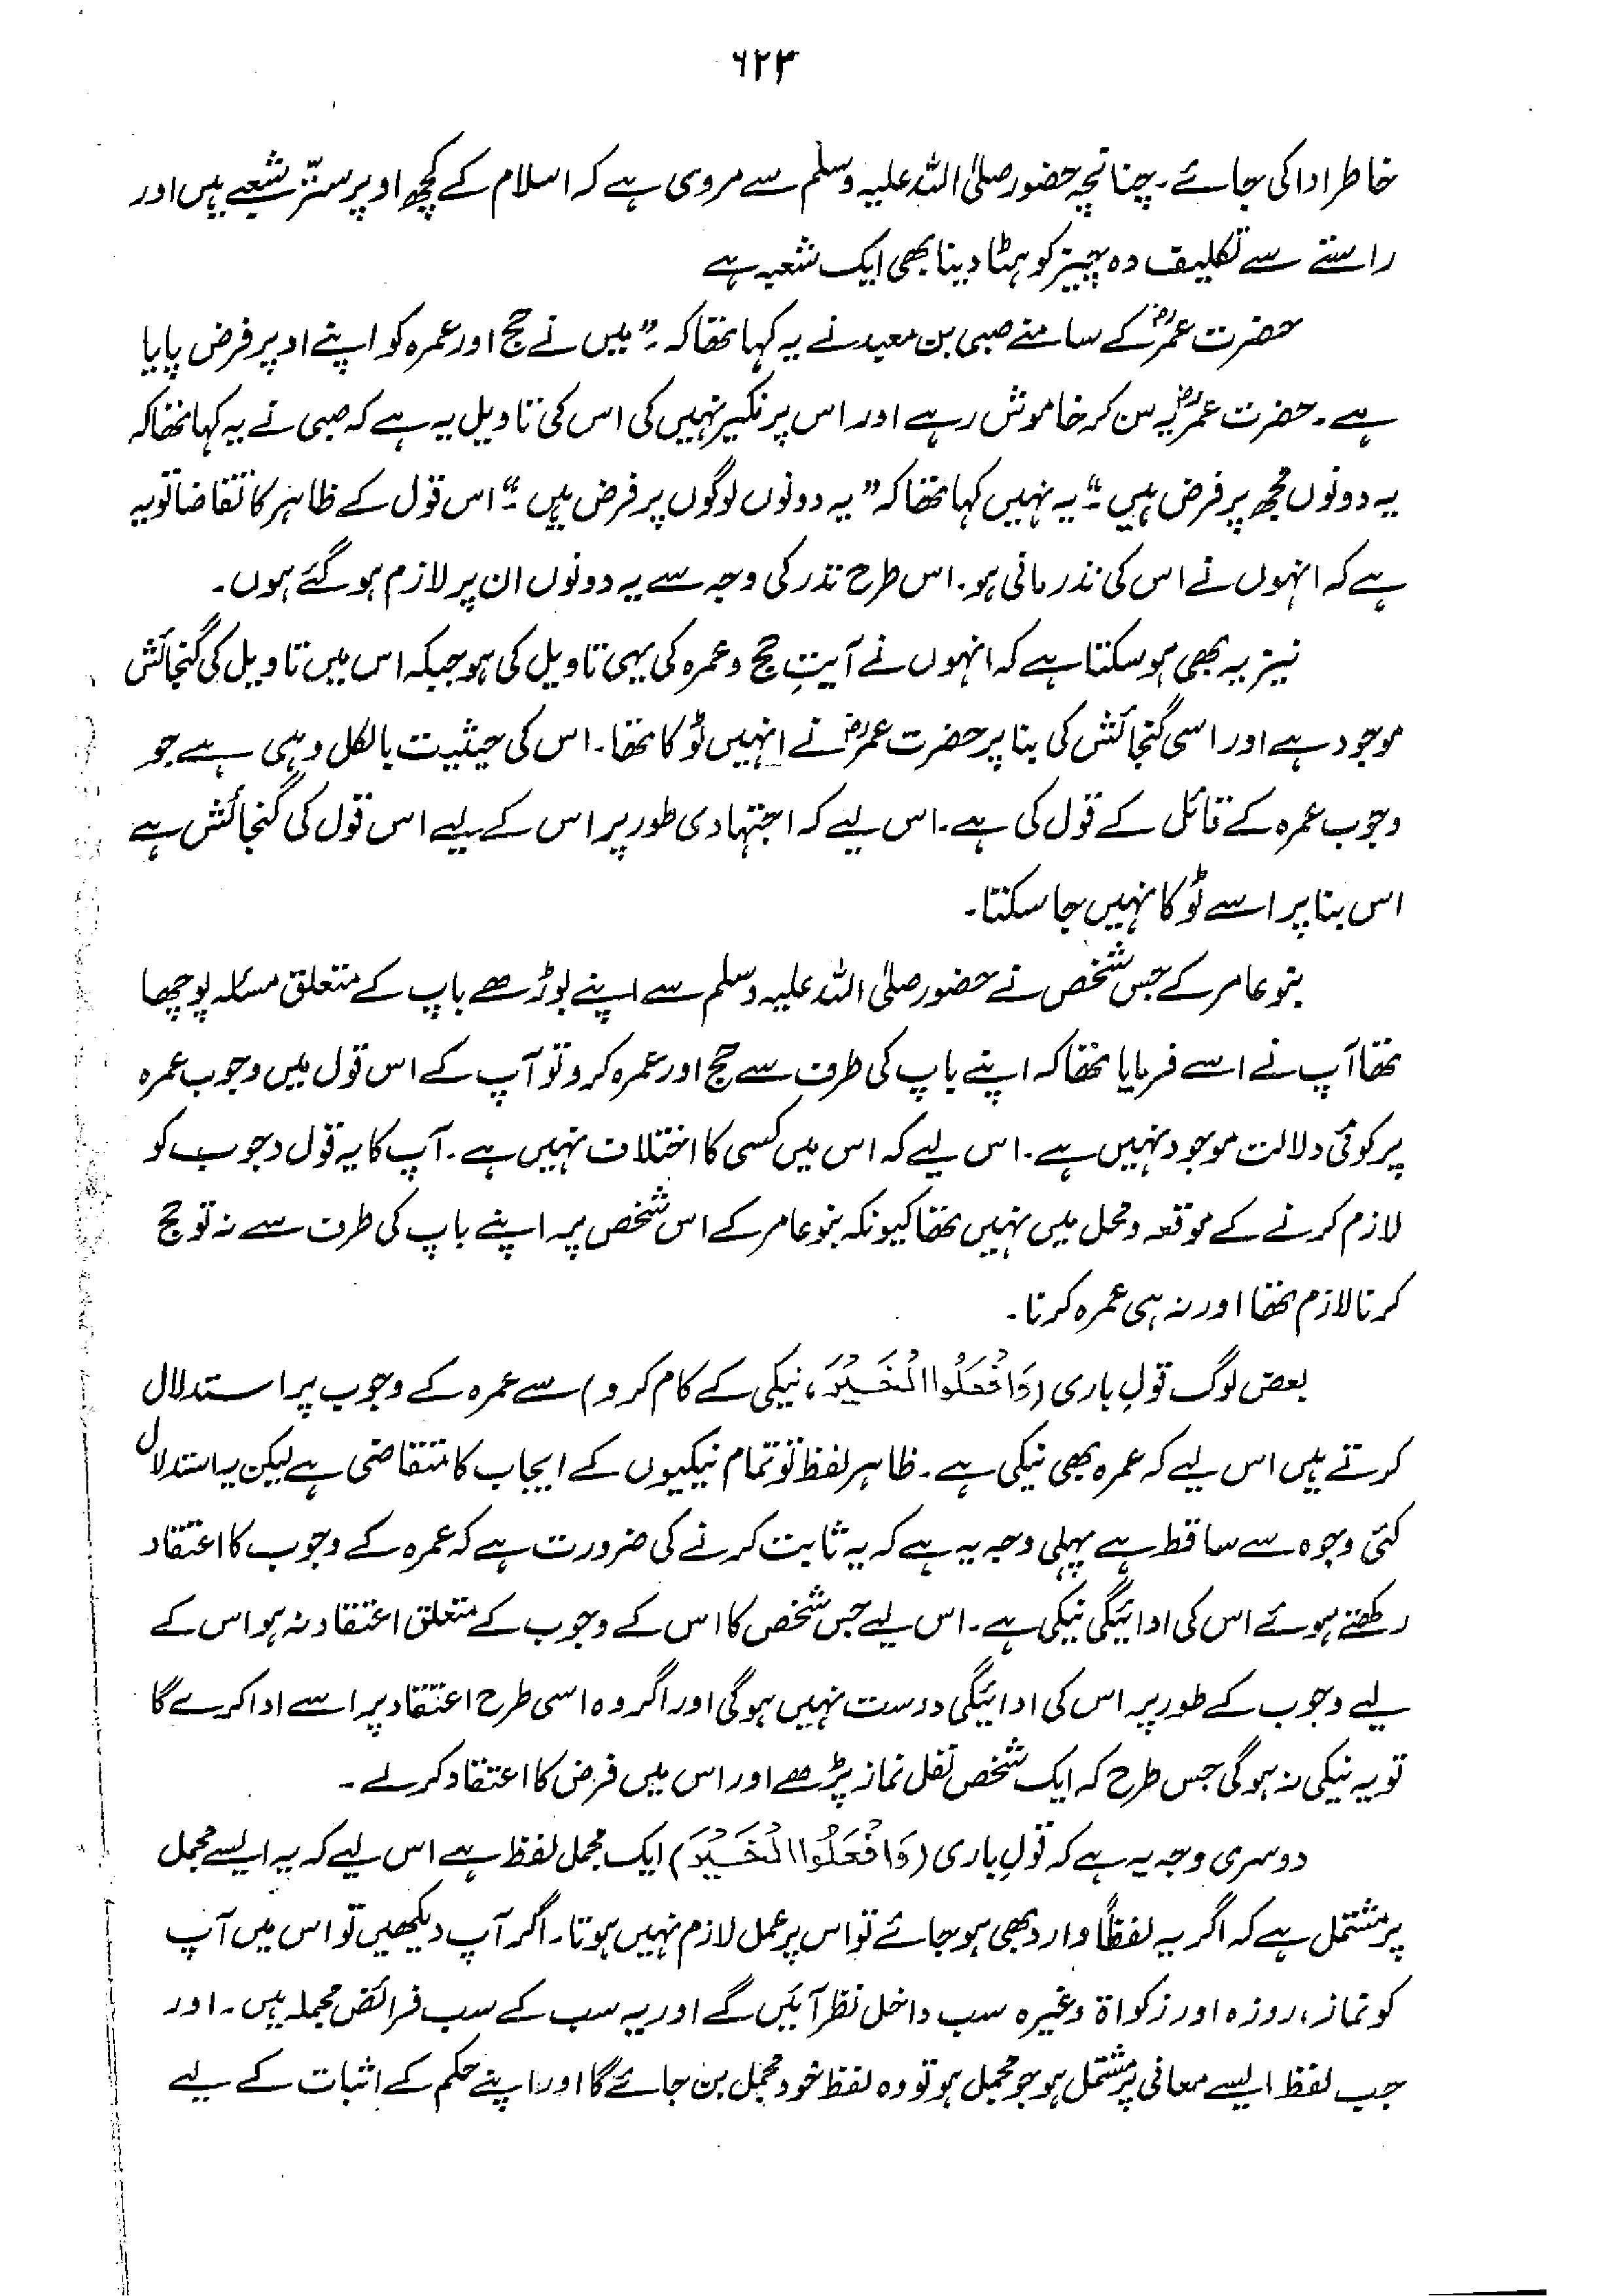 ۶۲۳
خاطر ادا کی جائے۔ چنانچہ حضور صلی اللہ علیہ وسلم سے مروی ہے کہ اسلام کے کچھ اوپر ستّر شعبے ہیں اور
راستے سے تکلیف دہ چیز کو ہٹا دینا بھی ایک شعبہ ہے
حضرت عمرؓ کے سامنے صبی بن معبد نے یہ کہا تھا کہ۔ "میں نے حج اور عمرہ کو اپنے اوپر فرض پایا
ہے۔ حضرت عمرؓ یہ سن کر خاموش رہے اور اس پر نکیر نہیں کی اس کی تاویل یہ ہے کہ صبی نے یہ کہا تھا کہ
یہ دونوں مجھ پر فرض ہیں۔" یہ نہیں کہا تھا کہ "یہ دونوں لوگوں پر فرض ہیں۔" اس قول کے ظاہر کا تقاضا تو یہ
ہے کہ انہوں نے اس کی نذر مانی ہو۔ اس طرح نذر کی وجہ سے یہ دونوں ان پر لازم ہو گئے ہوں۔
نیز یہ بھی ہو سکتا ہے کہ انہوں نے آیتِ حج و عمرہ کی یہی تاویل کی ہو جبکہ اس میں تاویل کی گنجائش
موجود ہے اور اسی گنجائش کی بنا پر حضرت عمرؓ نے انہیں ٹوکا تھا۔ اس کی حیثیت بالکل وہی ہے جو
وجوب عمرہ کے قائل کے قول کی ہے۔ اس لیے کہ اجتہادی طور پر اس کے لیے اس قول کی گنجائش ہے
اس بنا پر اسے ٹوکا نہیں جا سکتا۔
بنو عامر کے جس شخص نے حضور صلی اللہ علیہ وسلم سے اپنے بوڑھے باپ کے متعلق مسئلہ پوچھا
تھا آپ نے اسے فرمایا تھا کہ اپنے باپ کی طرف سے حج اور عمرہ کرو تو آپ کے اس قول میں وجوب عمرہ
پر کوئی دلالت موجود نہیں ہے۔ اس لیے کہ اس میں کسی کا اختلاف نہیں ہے۔ آپ کا یہ قول وجوب کو
لازم کرنے کے موقعہ و محل میں نہیں تھا کیونکہ بنو عامر کے اس شخص پر اپنے باپ کی طرف سے نہ تو حج
کرنا لازم تھا اور نہ ہی عمرہ کرنا۔
بعض لوگ قولِ باری (وَافْعَلُوا الْخَیْرَ، نیکی کے کام کرو) سے عمرہ کے وجوب پر استدلال
کرتے ہیں اس لیے کہ عمرہ بھی نیکی ہے۔ ظاہر لفظ تو تمام نیکیوں کے ایجاب کا متقاضی ہے لیکن یہ استدلال
کئی وجوہ سے ساقط ہے پہلی وجہ یہ ہے کہ یہ ثابت کرنے کی ضرورت ہے کہ عمرہ کے وجوب کا اعتقاد
رکھتے ہوئے اس کی ادائیگی نیکی ہے۔ اس لیے جس شخص کا اس کے وجوب کے متعلق اعتقاد نہ ہو اس کے
لیے وجوب کے طور پر اس کی ادائیگی درست نہیں ہو گی اور اگر وہ اسی طرح اعتقاد پر اسے ادا کرے گا
تو یہ نیکی نہ ہو گی جس طرح کہ ایک شخص نفل نماز پڑھے اور اس میں فرض کا اعتقاد کرلے۔
دوسری وجہ یہ ہے کہ قولِ باری (وَافْعَلُوا الْخَیْرَ) ایک مجمل لفظ ہے اس لیے کہ یہ ایسے مجمل
پر مشتمل ہے کہ اگر یہ لفظاً وارد بھی ہو جائے تو اس پر عمل لازم نہیں ہوتا۔ اگر آپ دیکھیں تو اس میں آپ
کو نماز، روزہ اور زکواۃ وغیرہ سب داخل نظر آئیں گے اور یہ سب کے سب فرائض مجملہ ہیں۔ اور
جب لفظ ایسے معانی پر مشتمل ہو جو مجمل ہو تو وہ لفظ خود مجمل بن جائے گا اور اپنے حکم کے اثبات کے لیے